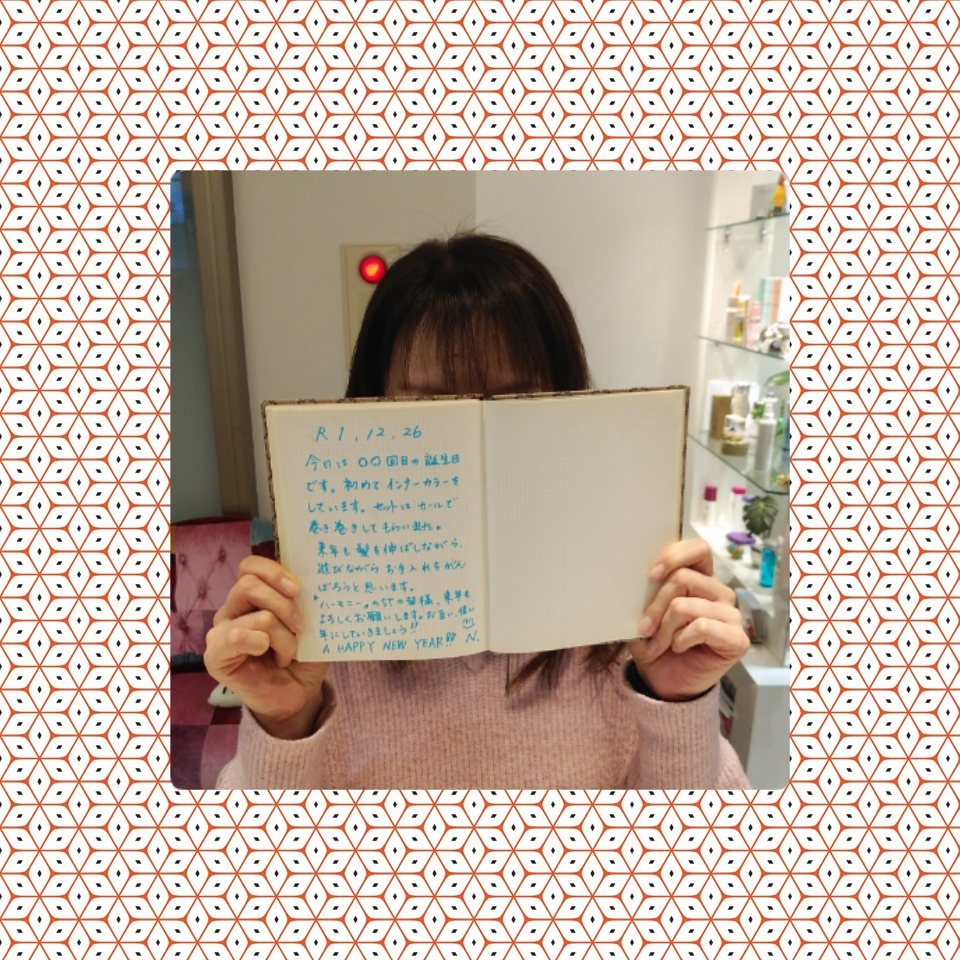 R1.12.26
今日は〇〇回目の誕生日
です。初めてインナーカラーを
しています。セットはカールで
巻き巻きしてもらいました。
来年も髪を伸ばしながら、
遊びながらお手入れをがん
ばろうと思います。
"ハーモニー"のSTの皆様、来年も
よろしくお願いします。お互い、良い
年にしていきましょう!!
A HAPPY NEW YEAR!! N.